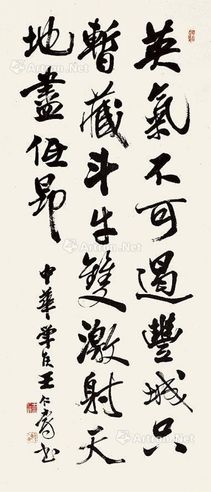 英氣不可遏豐城只
暫藏斗牛雙激射天
地盡低昂
中華學王个簃书
Artron.Net